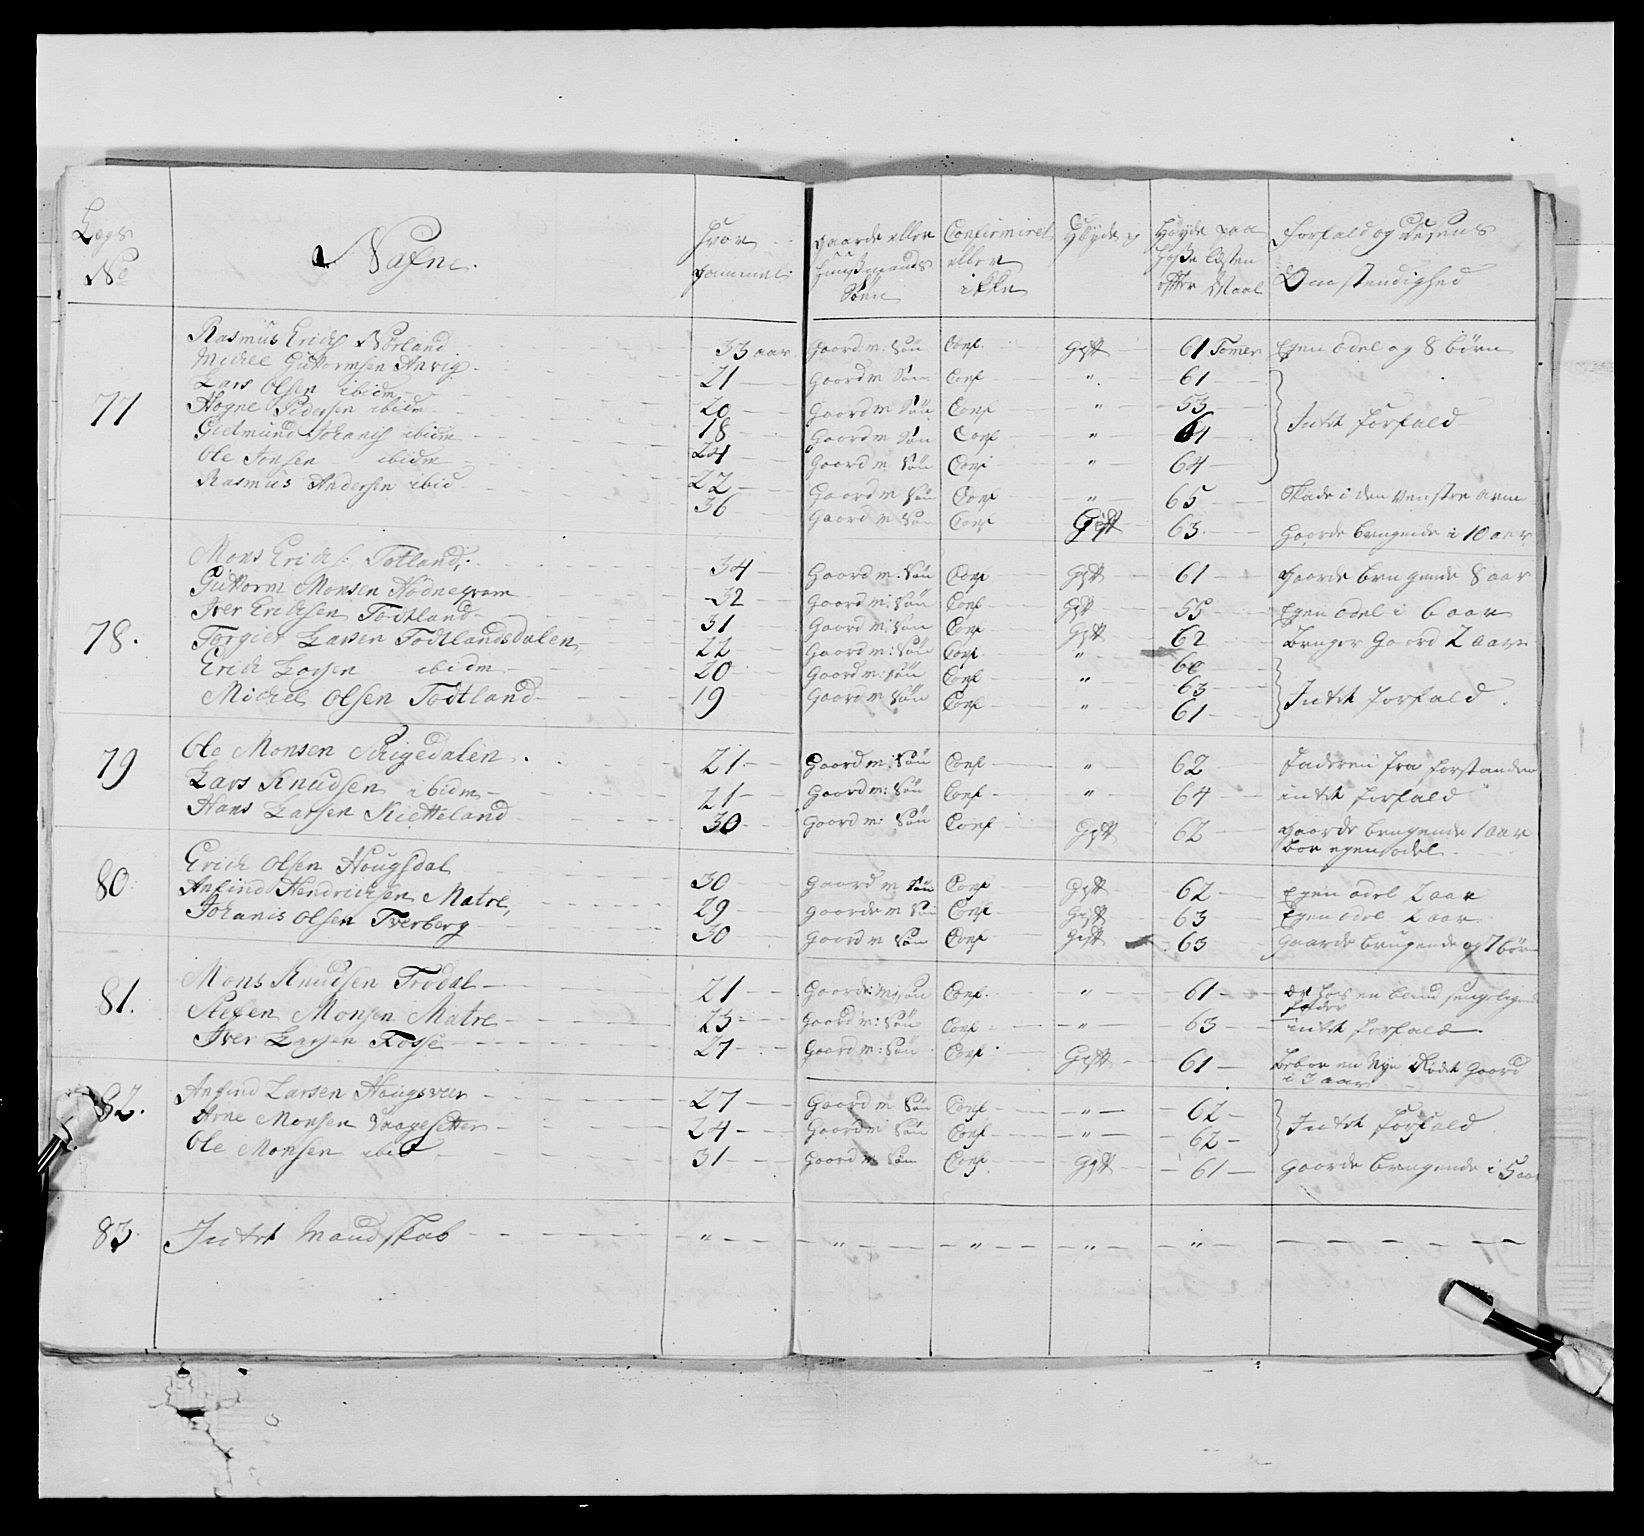 Lægs No
Nafne.
Hvor gammel.
Gaards eller Huusmands Søn
Confirmeret eller ikke
Høyde paa Hose Læsten efter Maal
Forfald og Omstendighed
71
Rasmus Erichs Nørland 33 aar Gaardm: Søn Conf Gift 61 Tomer Egen odel og 8 børn
Michel Guttormsen Anvig 21 Gaardm Søn Conf " 61
Lars Olsen ibidm 20 Gaardm Søn Conf " 53
Hogne Pedersen ibidm 18 Gaardm Søn Conf " 64 Intet forfald
Gudmund Johanis ibidm 24 Gaardm Søn Conf " 64
Ole Jonsen ibidm 22 Gaardm Søn Conf " 65 Skade i den venstre arm
Rasmus Andersen ibid 36 Gaardm Søn Conf Gift 63 Gaards brugende i 10 aar
78.
Mons Erichs: Totland, 34 Gaardm: Søn Conf Gift 61 Gaards brugende 8 aar
Guttorm Monsen Hodneqvam 32 Gaardm: Søn Conf Gift 55 Egen odel i 6 aar
Iver Erichsen Todtland 31 Gaardm: Søn Conf Gift 62 Bruger Gaard 2 aar
Torgier Larsen Todtlandsdalen, 22 Gaardm: Søn Conf " 60
Erich Larsen ibidm 20 Gaardm: Søn Conf " 63 Intet forfald.
Michel Olsen Todtland 19 Gaardm Søn Conf " 61
79
Ole Monsen Stuigedalen. 21 Gaardm: Søn Conf " 62 Faderen fra forstanden
Lars Knudsen ibidm 21 Gaardm: Søn Conf " 64 intet forfald
Hans Larsen Kietteland 30 Gaardm: Søn Conf Gift 62 Gaards brugende 1 aar
bor egen odel
80.
Erich Olsen Hougsdal 30 Gaardm Søn Conf Gift 62 Egen odel 2 aar
Anfind Hendrichsen Matre, 29 Gaardem Søn Conf Gift 63 Egen odel 2 aar
Johanis Olsen Tverberg 30 Gaardm Søn Conf Gift 63 Gaards brugende og 7 børn
81.
Mons Knudsen Frødal 21 Gaardem: Søn Conf. " 61 er hos en blind sengeligende
fader
Stefen Monsen Matre 23 Gaardm: Søn Conf " 63 intet forfald
Iver Larsen Fosse 27 Gaardm: Søn Conf Gift 61 beboer en Nye Rødt Gaard
i 3 aar
82.
Anfind Larsen Hougsveer 27 Gaardm Søn Conf " 62
Arne Monsen Vaagesetter 24 Gaardm Søn Conf " 62 Intet forfald
Ole Monsen ibid 31 Gaardm Søn Conf. Gift 61 Gaards brugende i 5 aar
83 Intet Mandskab " " " " "